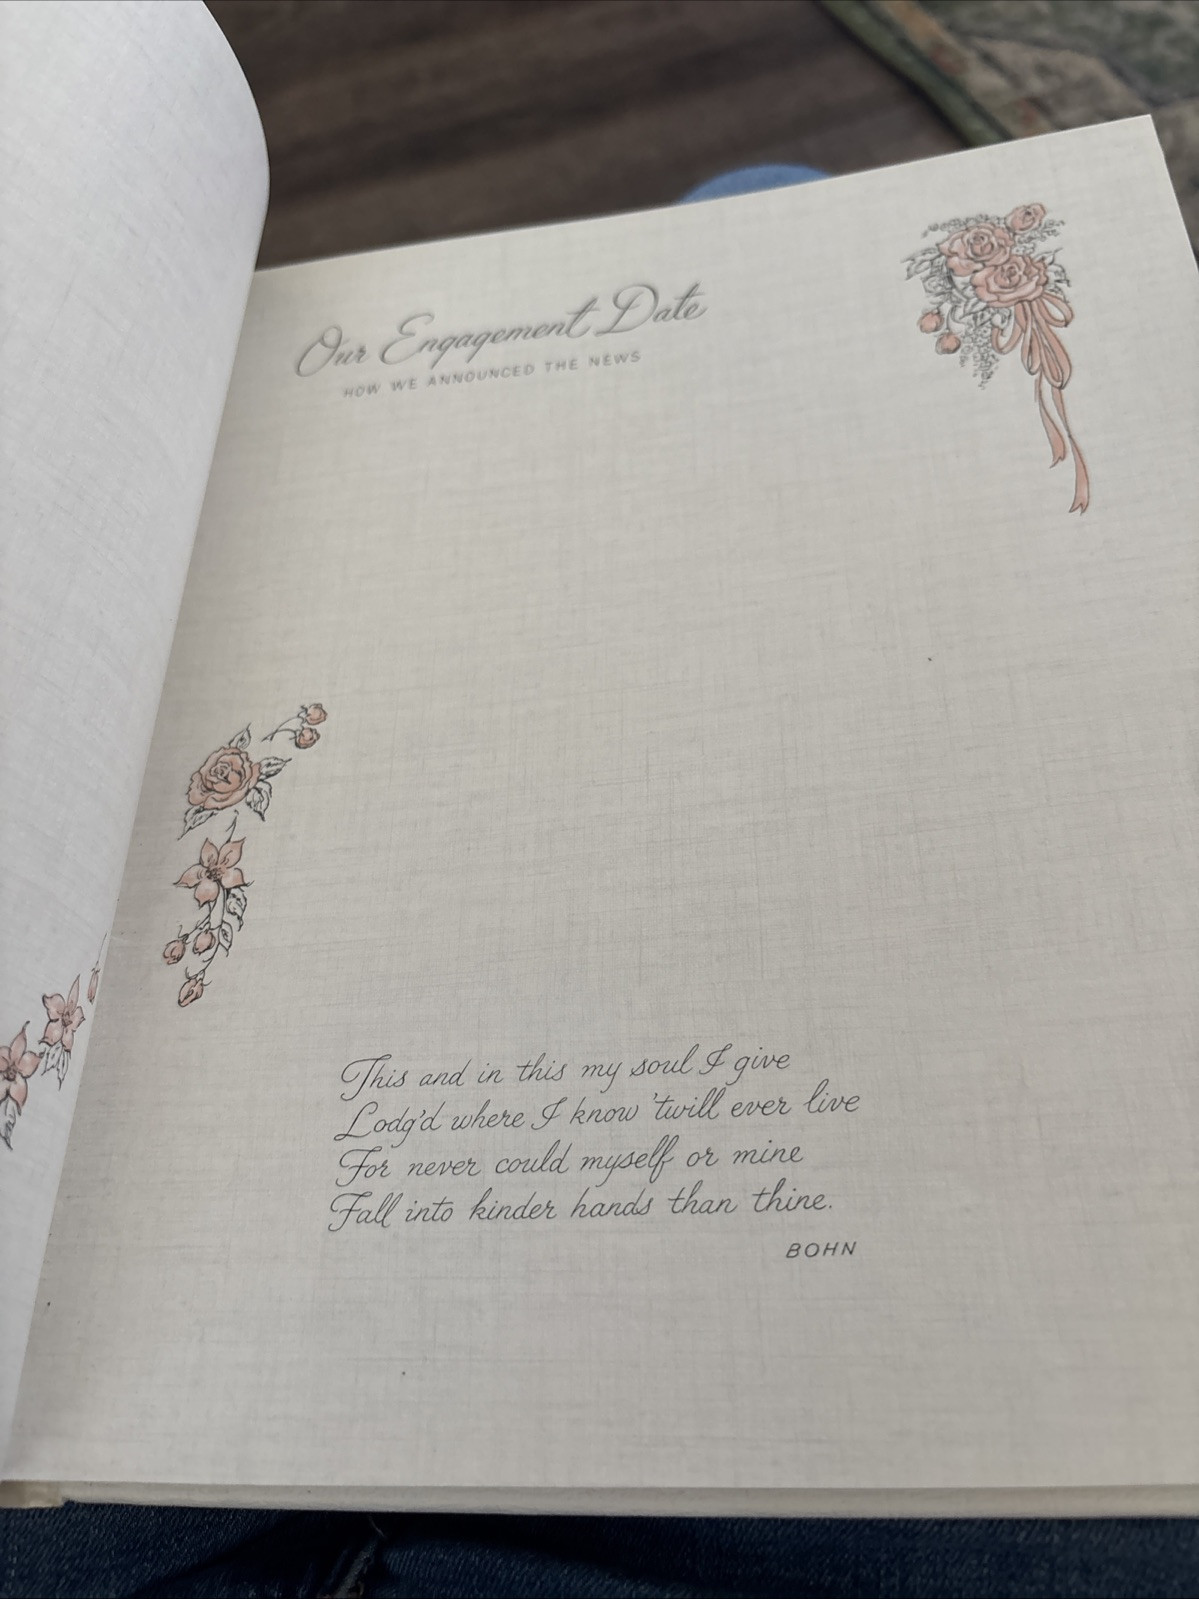 Our Engagement Date
HOW WE ANNOUNCED THE NEWS
This and in this my soul I give
Lodg'd where I know 'twill ever live
For never could myself or mine
Fall into kinder hands than thine.
BOHN